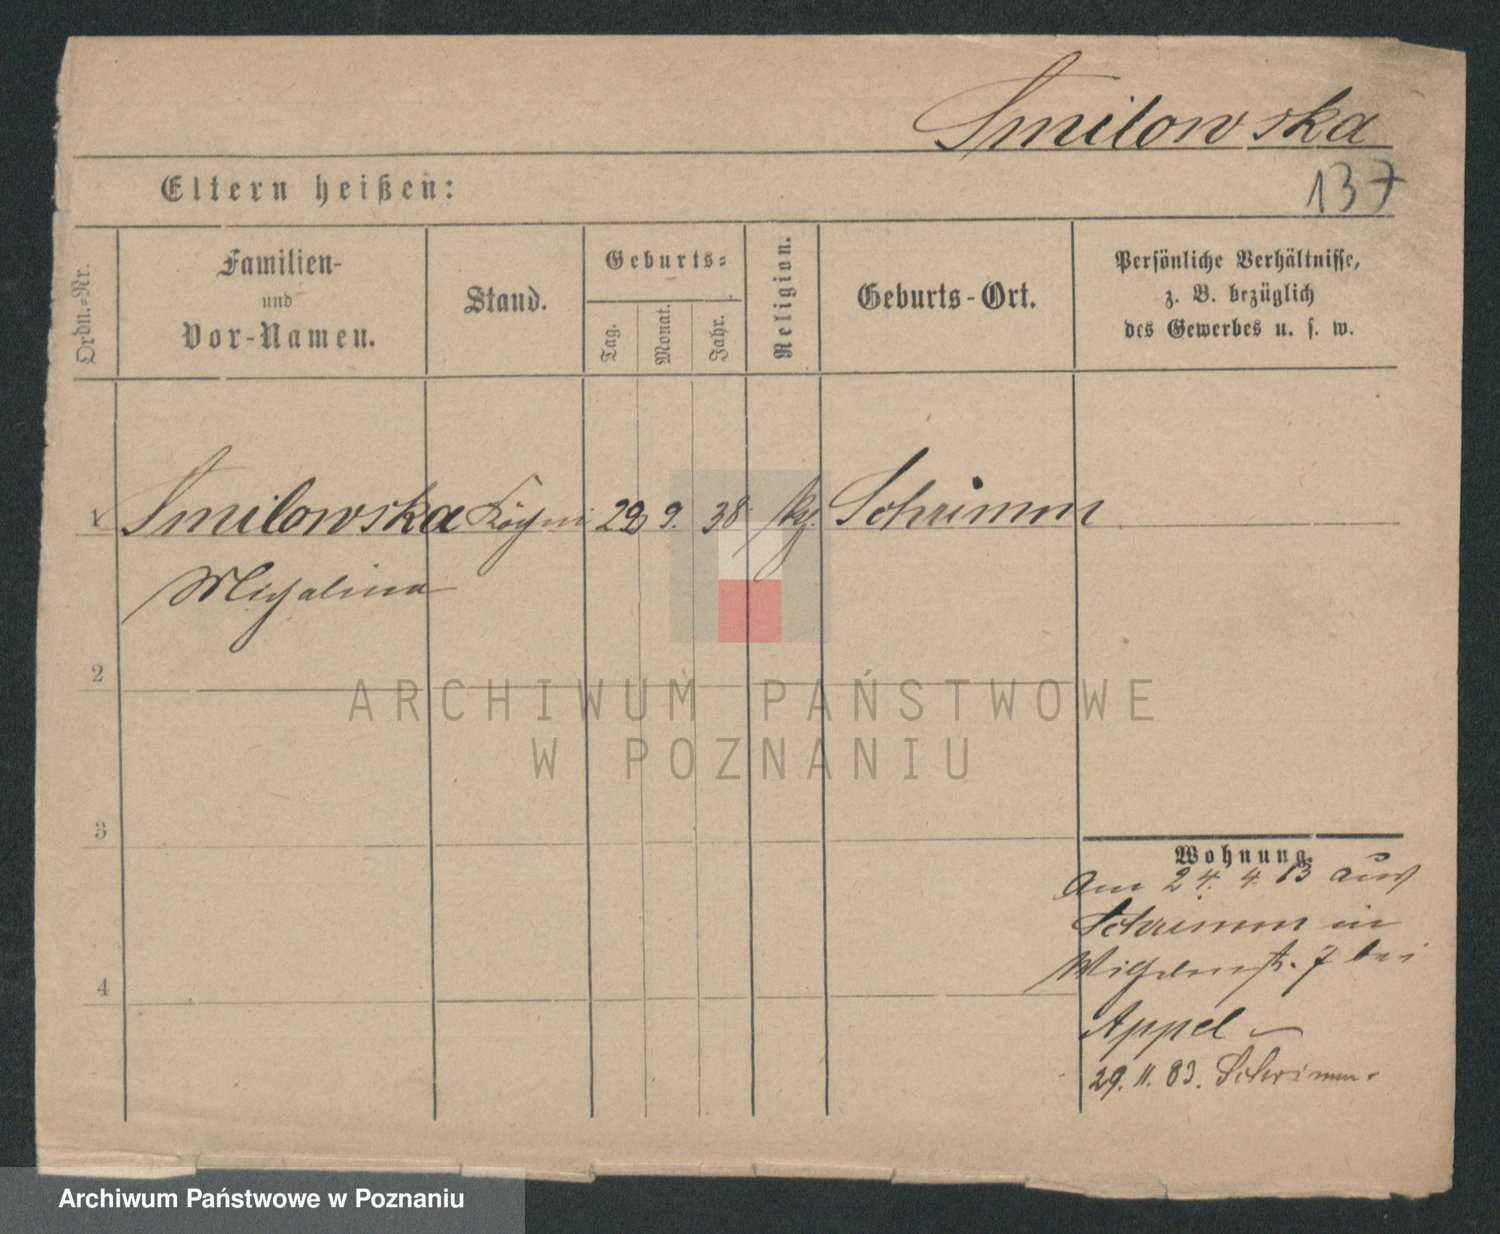 Smilowska
137
Eltern heißen:
Ordn.=Nr.
Familien-
und
Vor-Namen.
Stand.
Geburts=
Tag.
Monat.
Jahr.
Religion.
Geburts-Ort.
Persönliche Verhältnisse,
z. B. bezüglich
des Gewerbes u. s. w.
1 Smilowska Köchin 29 9. 38 Schrimm
Michalina
2
3
4
Wohnung.
Am 24. 4. 83 aus
Schrimm in
Wilhelmstr. 7 bei
Appel
29. 11. 83. Schrimm.
ARCHIWUM PAŃSTWOWE
W POZNANIU
Archiwum Państwowe w Poznaniu